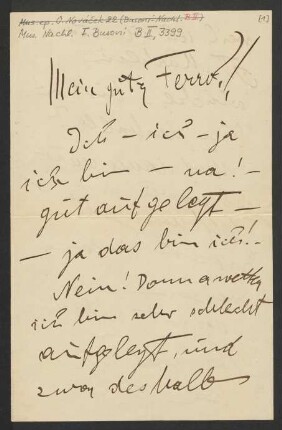 Mus. ep. O. Nováček 22 (Busoni-Nachl. B II)
[1]
Mus. Nachl. F. Busoni B II, 3399
Mein guter Ferro!
Ich – ich – ja
ich bin – na! –
gut aufgelegt –
– ja das bin ich! –
Nein! Donnerwetter
ich bin sehr schlecht
aufgelegt, und
zwar deshalb